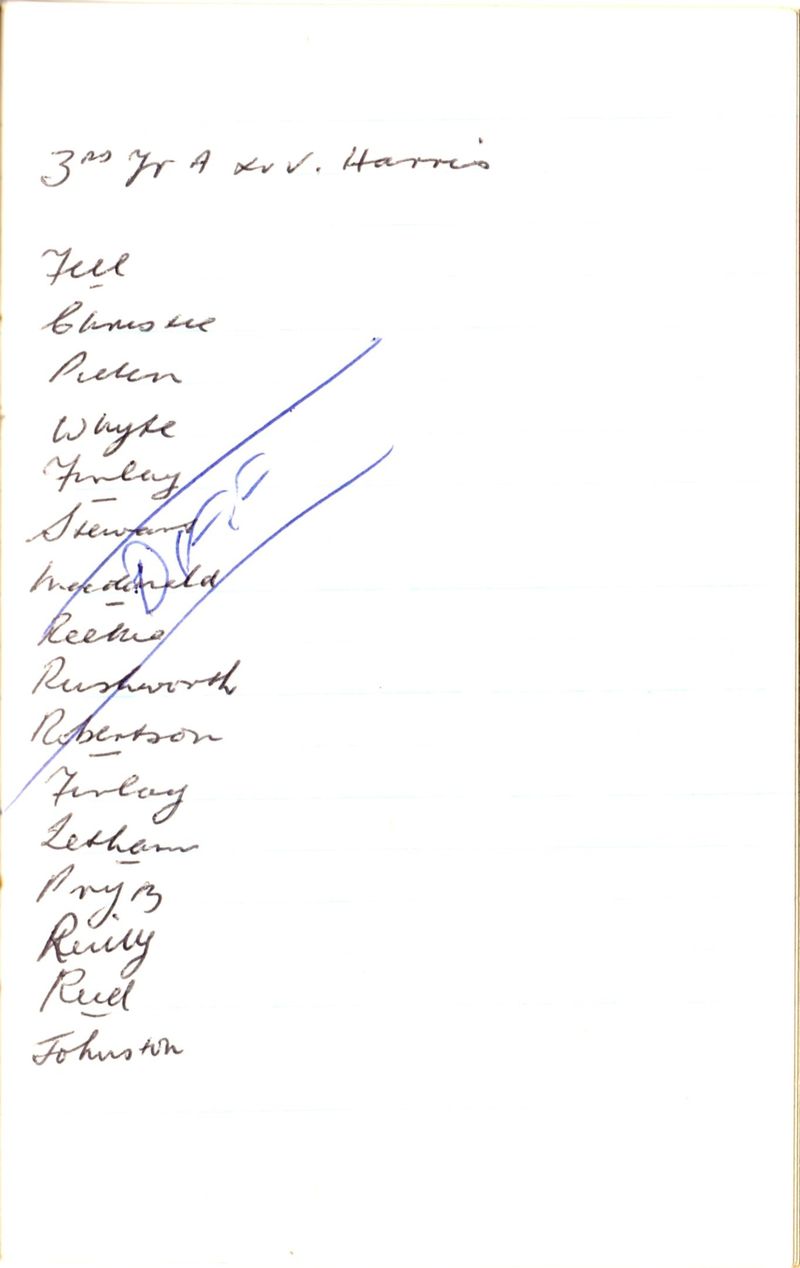 3RD Yr A XV V. Harris
Fell
Christie
Whyte
Finlay
Stewart
Macdonald
Reekie
Rushworth
Robertson
Finlay
Letham
Reilly
Reid
Johnston